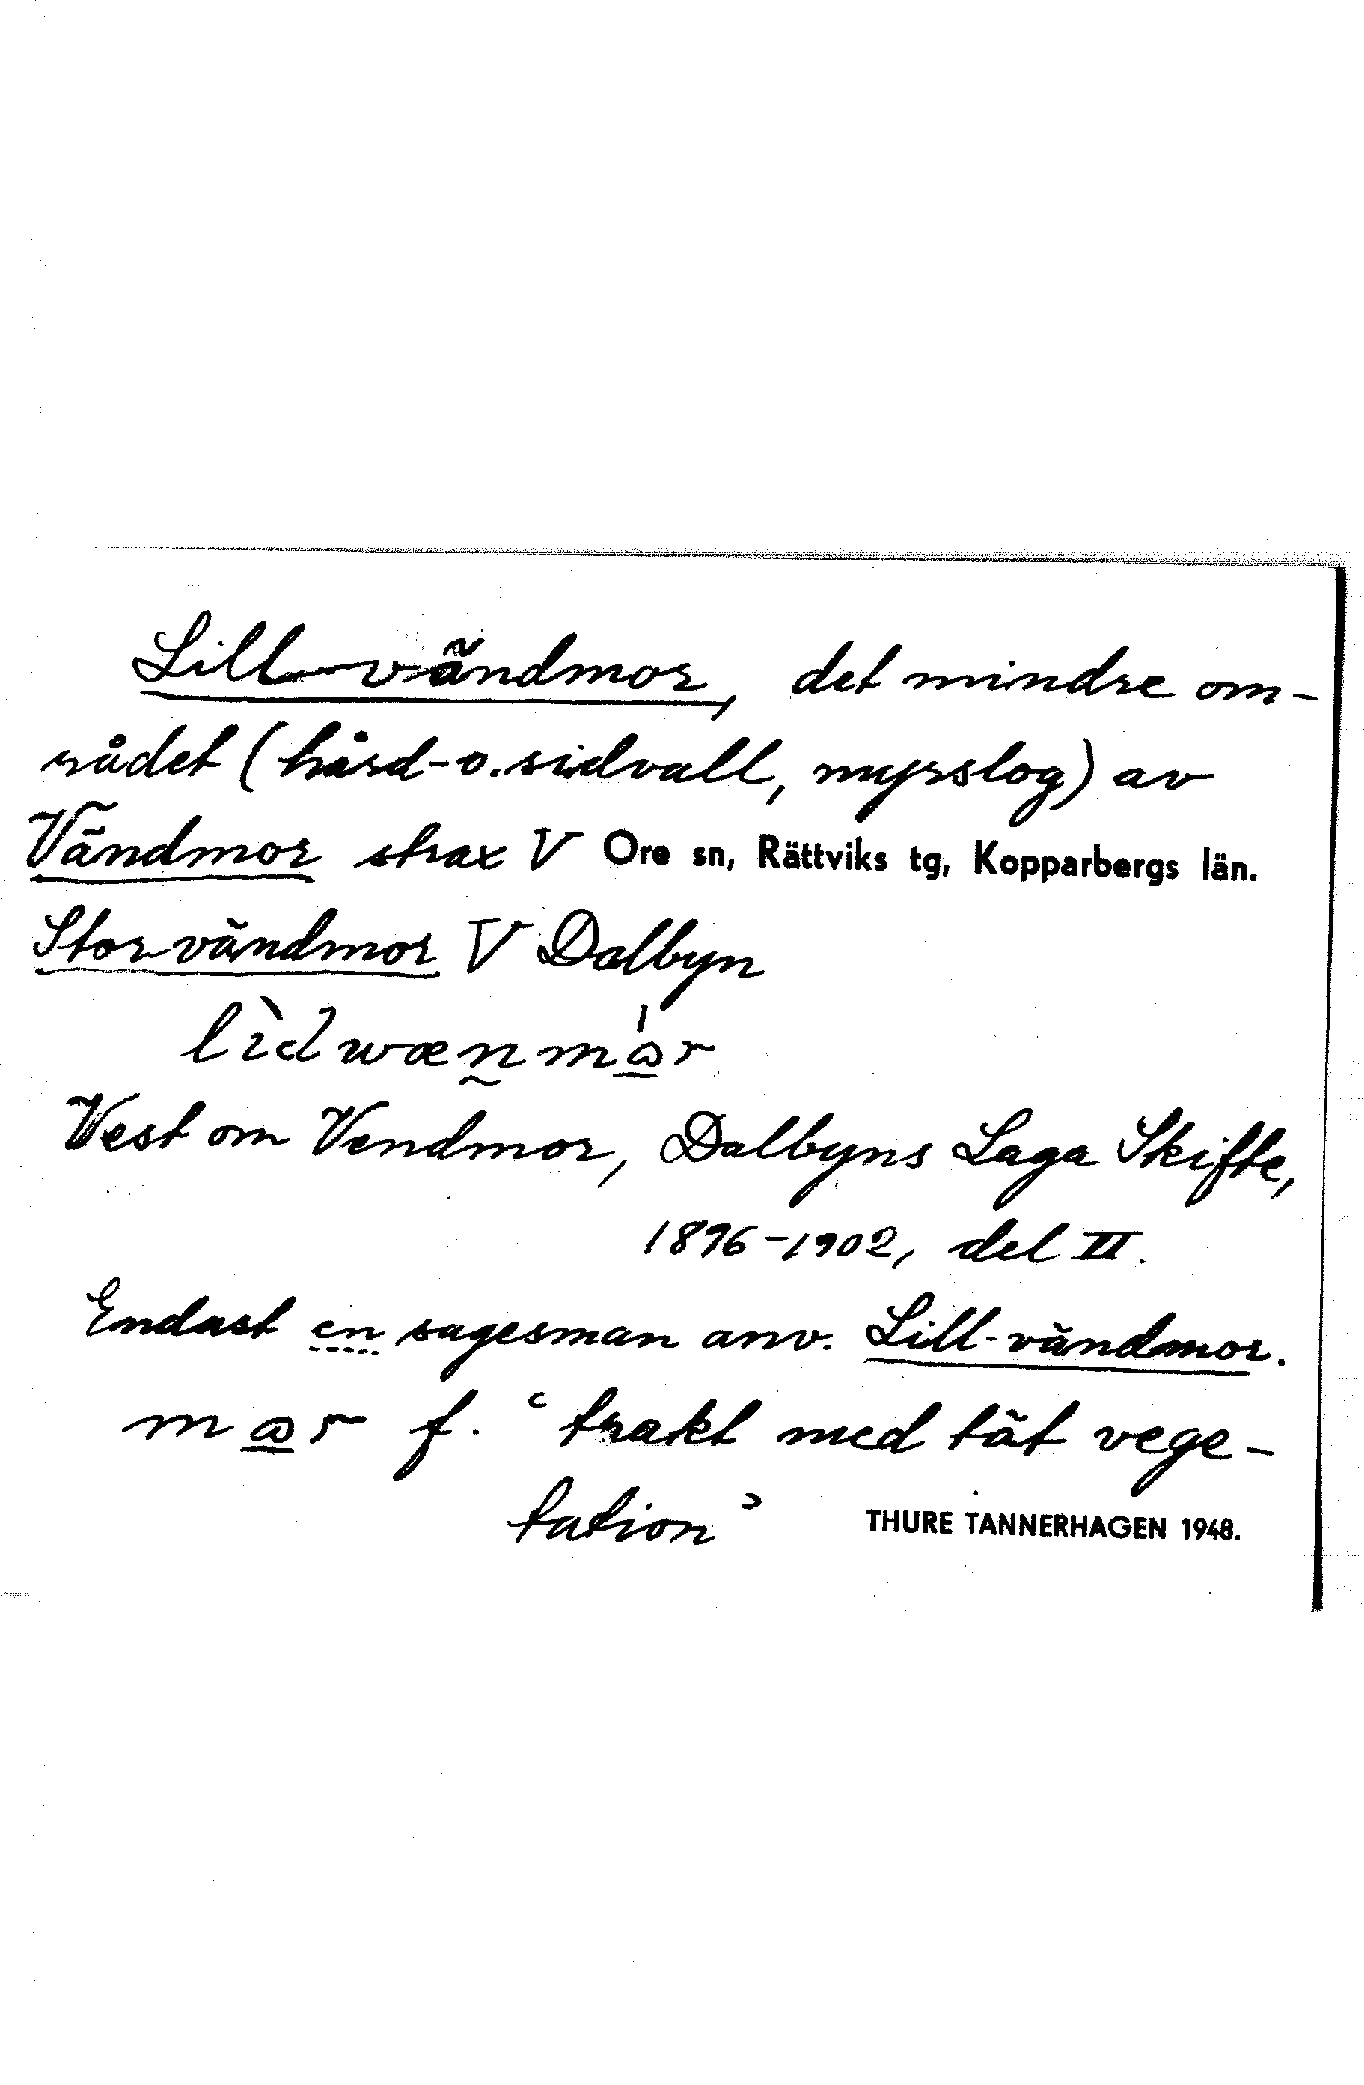 Lill-vändmor, det mindre om-
rådet (hård- o. sidvall, myrslog) av
Vändmor strax V Ore sn, Rättviks tg, Kopparbergs län.
Storvändmor V Dalbyn
lìdwænmɷ̀r
Vest om Vendmor, Dalbyns Laga Skifte,
1896-1902, del II.
Endast en sagesman anv. Lill-vändmor.
mɷr f. ʿtrakt med tät vege-
tationʾ THURE TANNERHAGEN 1948.